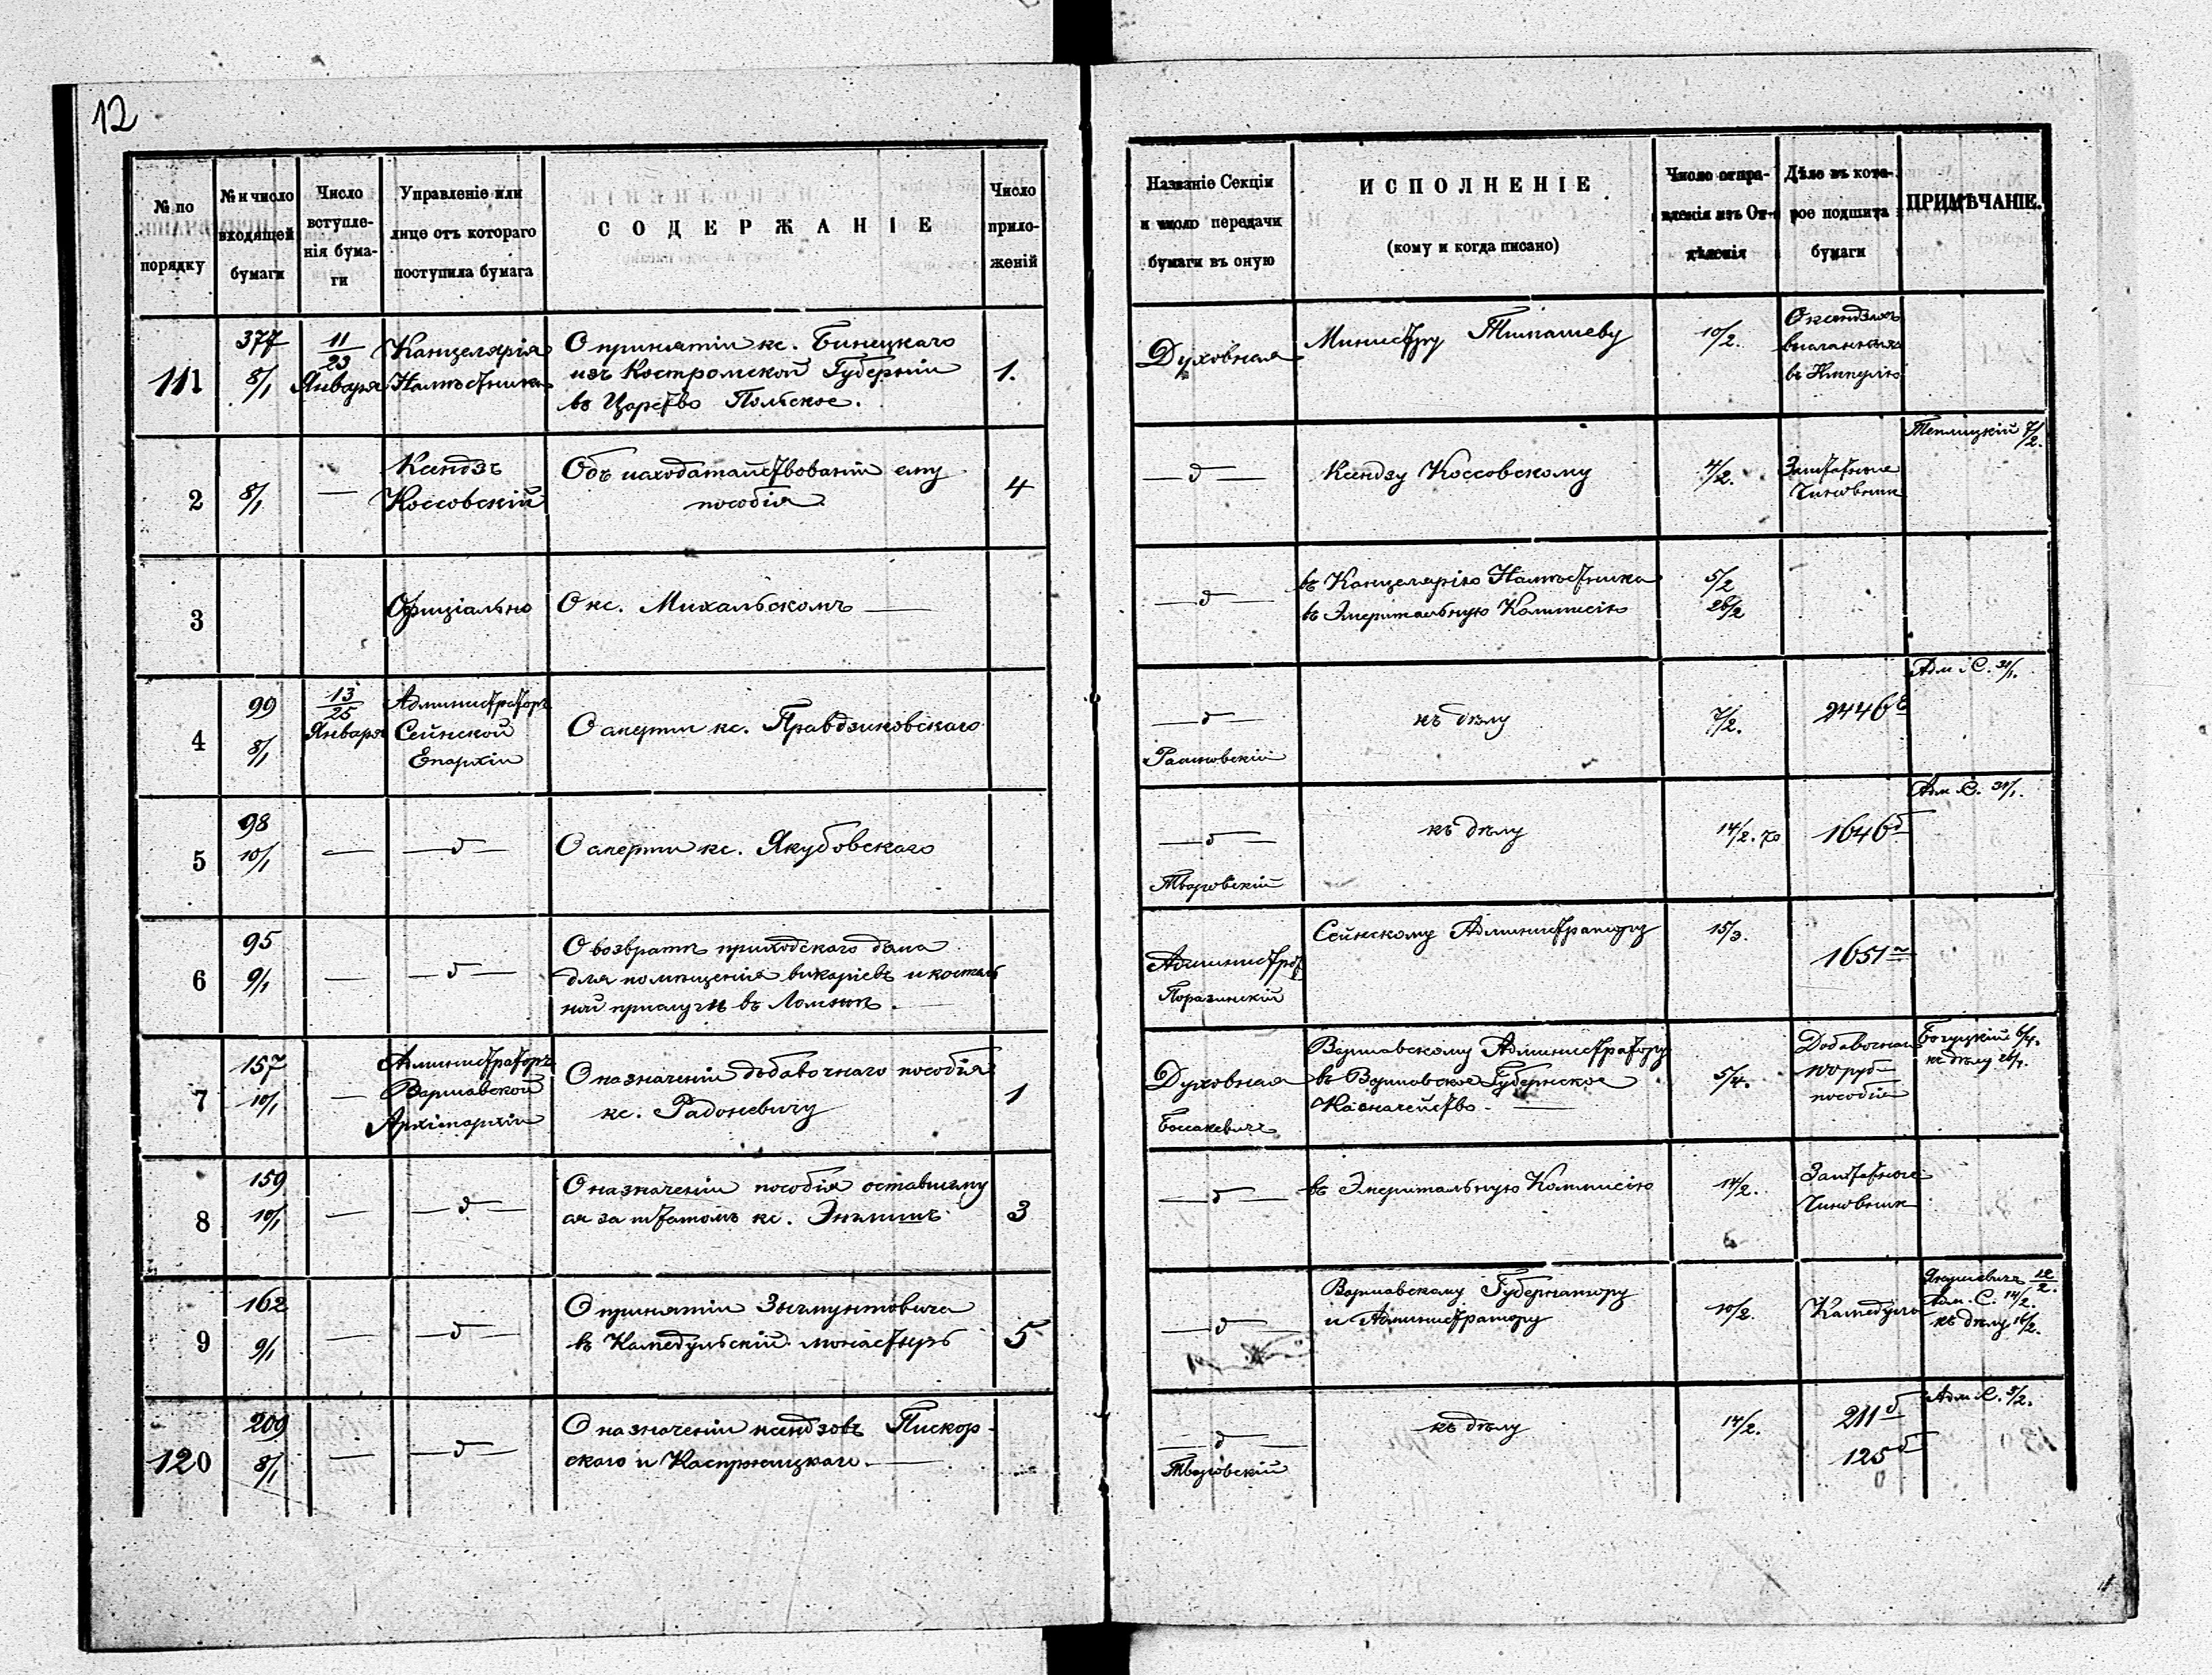 12
№ по порядку
№ и число входящей бумаги
Число вступле-
нія бума-
ги
Управленіе или
лице отъ котораго
поступила бумага
СОДЕРЖАНІЕ
Число
прило-
женій
Названіе Секціи
и число передачи
бумаги въ оную
ИСПОЛНЕНІЕ
(кому и когда писано)
Число отпра-
вленія изъ От-
дѣленія
Дѣло въ кото-
рое подшита
бумаги
ПРИМѢЧАНІЕ.
111
377
8/1
11/23
Января
Канцелярія
Намѣстника
О принятіи кс. Бинецкаго
изъ Костромской Губерніи
въ Царство Польское.
1.
Духовная
Министру Тимашеву
10/2.
О ксендзахъ
въ Имперію
2
8/1
—
Ксендзъ
Коссовскій
Объ исходатайствованіи ему
пособія
4
— д —
Ксендзу Коссовскому
4/2.
Заштатные
Чиновник
Теплицкій 7/2.
3
Офиціально
О кс. Михальскомъ —
— д —
въ Канцелярію Намѣстника
въ Эмеритальную Коммисію
5/2
26/2
4
99
8/1
13/25
Января
Администраторъ
Сейнской
Епархіи
О смерти кс. Правдзиковскаго
— д —
къ дѣлу
7/2.
2446
Адм. С. 31/1.
5
98
10/1
—
— д —
О смерти кс. Якубовскаго
— д —
Творовскій
къ дѣлу
14/2. 70
1646
Адм. С. 31/1.
6
95
9/1
—
— д —
О возвратѣ приходскаго дома
для помѣщенія викаріевъ и костель
ной прислуги въ Ломжѣ. —
Администрат
Сейнскому Администратору
15/3.
1651
7
157
10/1
—
Администраторъ
Варшавской
Архіепархіи
О назначеніи добавочнаго пособія
кс. Радоневичу
1
Духовная
Боссакевичъ
Варшавскому Администратору
въ Варшавское Губернское
Казначейство. —
5/4.
Добавочная
100 руб
пособія
Богуцкій 6/4.
къ дѣлу 26/4.
8
159
10/1
—
— д —
О назначеніи пособія оставшему
ся за штатомъ кс.
3
— д —
въ Эмеритальную Коммисію
14/2.
Заштатные
Чиновник
9
162
9/1
—
— д —
О принятіи Зыгмунтовича
въ Камедульскій монастырь
5
— д —
Варшавскому Губернатору
и Администратору
10/2.
Камедулы
Янушевичъ 12/2.
Адм. С. 14/2.
къ дѣлу 16/2.
120
209
8/1
—
— д —
О назначеніи ксендзовъ Пискор-
скаго и Каспржицкаго. —
— д —
Творовскій
къ дѣлу
14/2.
211 д
125 д
Адм. С. 3/2.